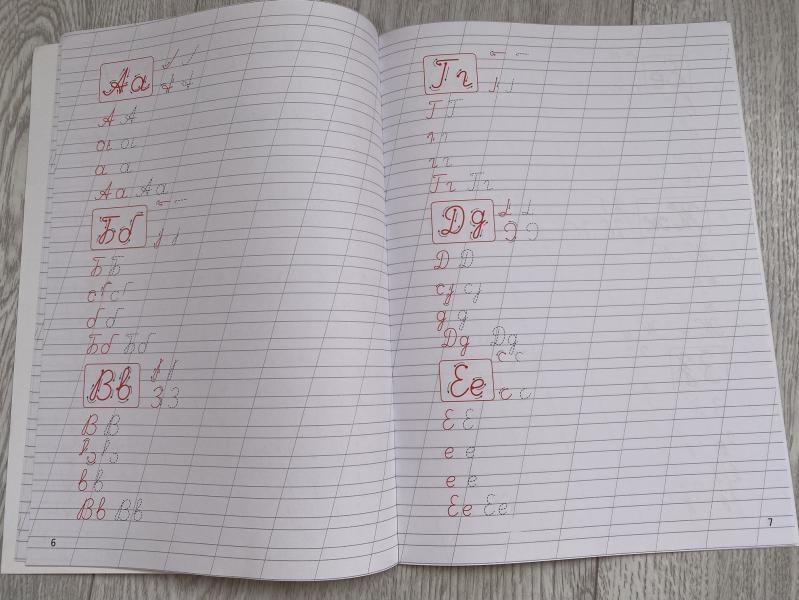 Аа
А А
а а
Аа Аа
Бб
Б Б
б б
Бб Бб
Вв
З З
В В
в в
Вв Вв
6
Гг
Г Г
г г
Гг Гг
Дд
Д Д
д д
Дд Дд
с с
Ее
с с
Е Е
е е
е е
Ее Ее
7